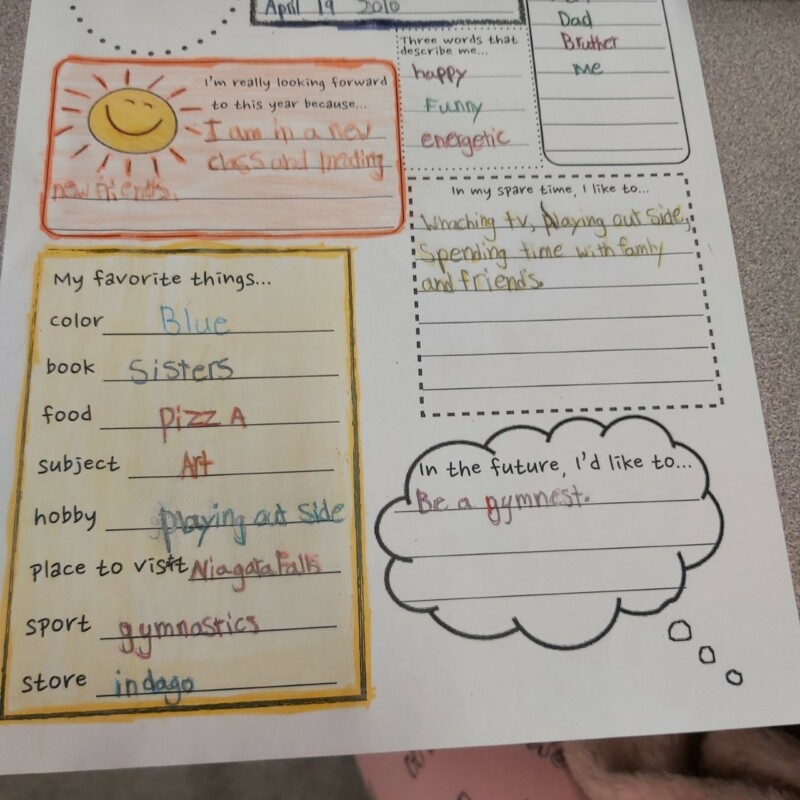 April 19 2010
Dad
Bruther
me
Three words that
describe me...
happy
Funny
energetic
I'm really looking forward
to this year because...
I am in a new
class and meding
new friends.
In my spare time, I like to...
Whaching tv, playing out side,
Spending time with famly
and friends.
My favorite things...
color Blue
book Sisters
food PizzA
subject Art
hobby playing out side
place to visit Niagara Falls
sport gymnastics
store indago
In the future, I'd like to...
Be a gymnest.